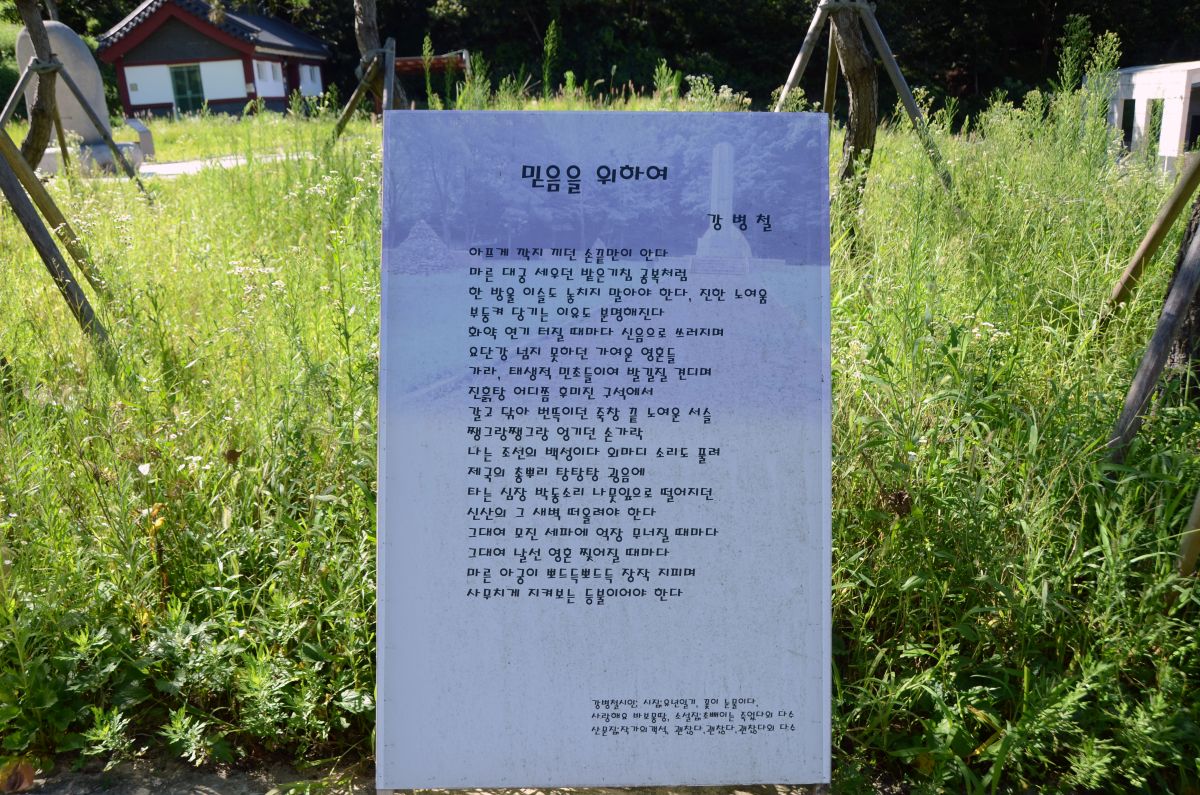 믿음을 위하여
강 병 철
아프게 깍지 끼던 손끝만이 안다
마른 대궁 세우던 밭은기침 궁복처럼
한 방울 이슬도 놓치지 말아야 한다, 진한 노여움
부둥켜 당기는 이유도 분명해진다
화약 연기 터질 때마다 신음으로 쓰러지며
요단강 넘지 못하던 가여운 영혼들
가라, 태생적 민초들이여 발길질 견디며
진흙탕 어디쯤 후미진 구석에서
갈고 닦아 번뜩이던 죽창 끝 노여운 서슬
쨍그랑쨍그랑 엉기던 손가락
나는 조선의 백성이다 외마디 소리도 풀려
제국의 총뿌리 탕탕탕 굉음에
타는 심장 박동소리 나뭇잎으로 떨어지던
신산의 그 새벽 떠올려야 한다
그대여 모진 세파에 억장 무너질 때마다
그대여 날선 영혼 찢어질 때마다
마른 아궁이 뽀드득뽀드득 장작 지피며
사무치게 지켜보는 등불이어야 한다
강병철시인; 시집;유년일기, 꽃이 눈물이다,
사랑해요 바보몽땅, 소설집;초뻬이는 죽었다외 다수
산문집;작가의객석, 괜찮다,괜찮다,괜찮다외 다수